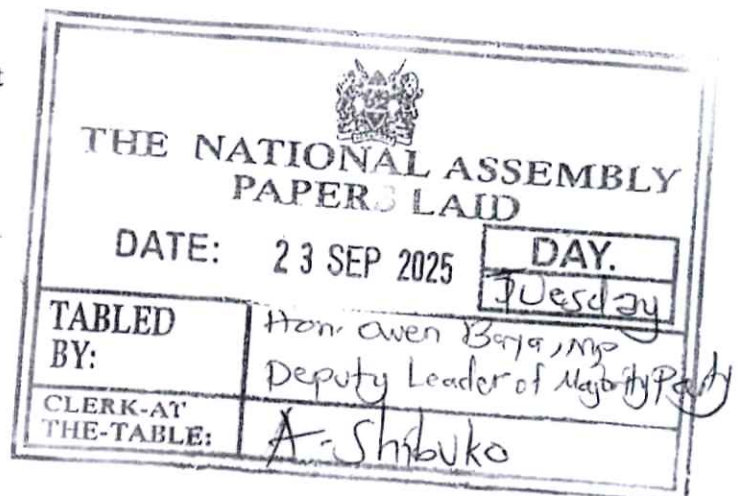 THE NATIONAL ASSEMBLY
PAPERS LAID
DATE: 23 SEP 2025
DAY.
Tuesday
TABLED BY:
Hon. Owen Baya, MP
Deputy Leader of Majority Party
CLERK-AT THE-TABLE:
A. Shibuko